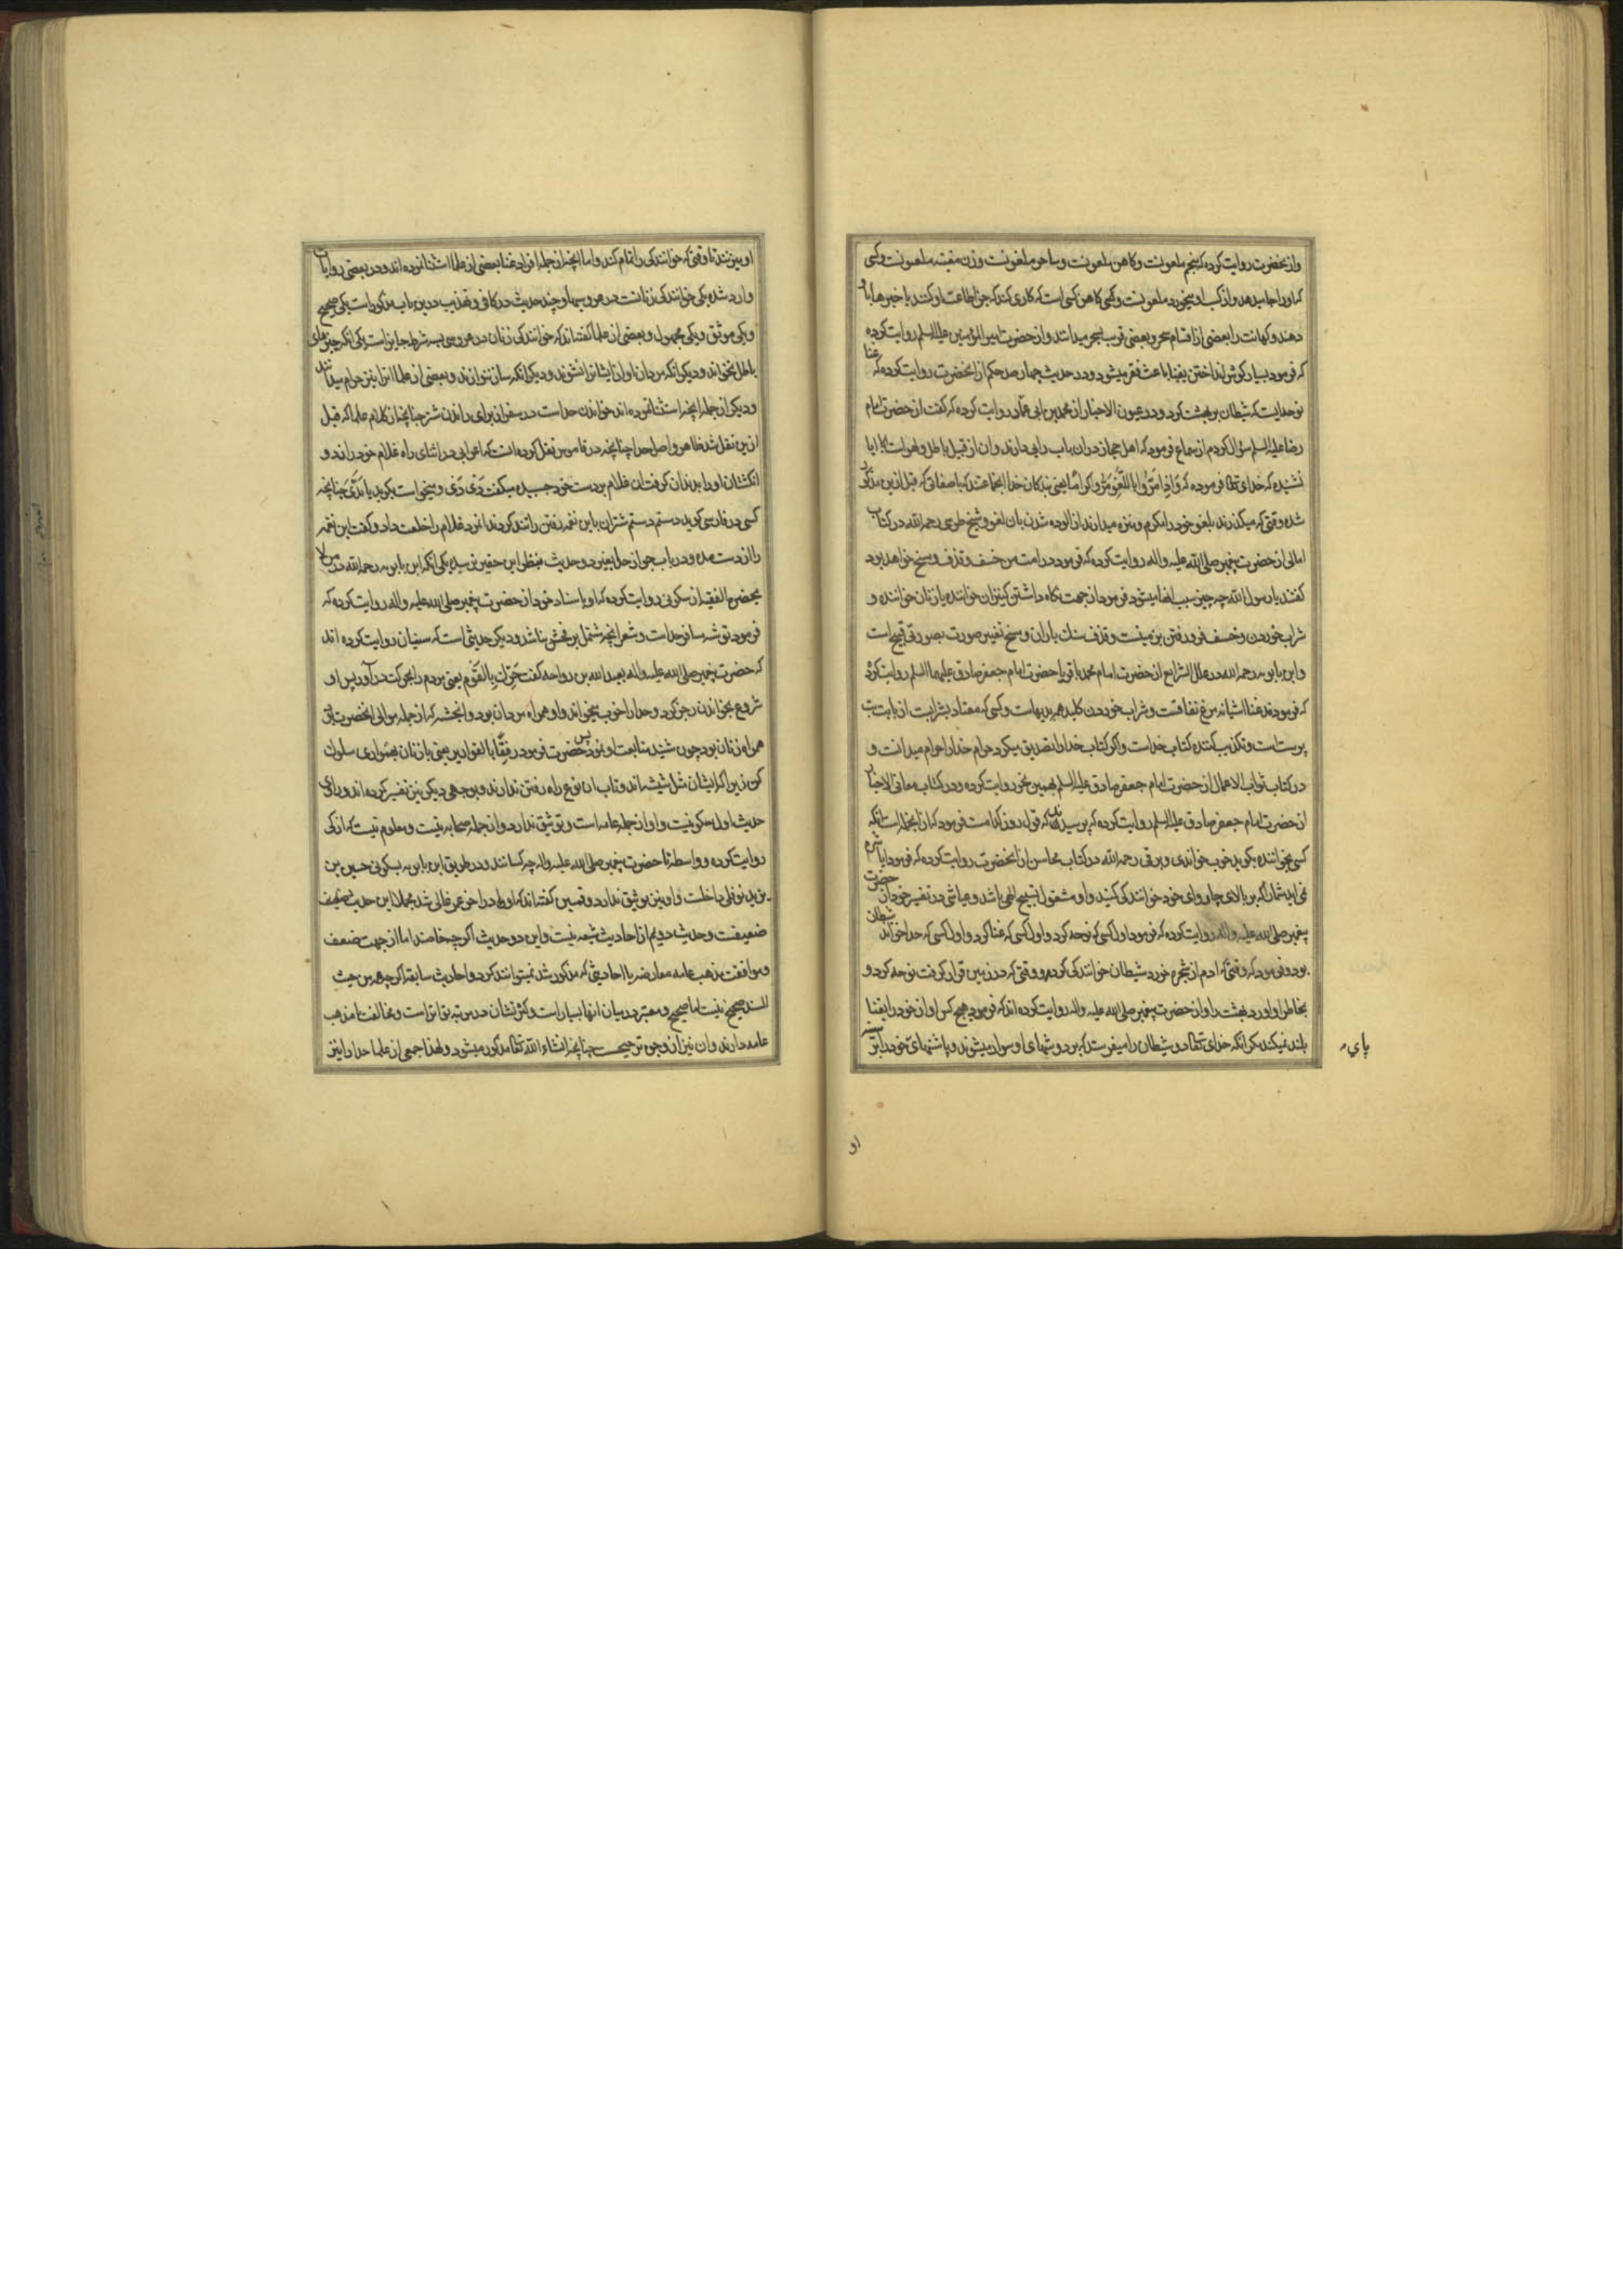 واز حضرت روایت کرده که منجم ملعونست و کاهن ملعونست و ساحر ملعونست و زن مغنیه ملعونست و کسی
که او را جا میدهد و از کسب او میخورد ملعونست و کسی کاهن کسی است که کاری کند که جن اطاعت او کنند یا خبرها باو
دهند و کهانت را بعضی از اقسام سحر و بعضی قریب بسحر میدانند و از حضرت امیر المؤمنین علیه السلم روایت کرده
که فرمود بسیار گوش انداختن بغنا باعث فقر میشود و در حدیث چهار صد حکم از انحضرت روایت کرده که غنا
نوحه ایست که شیطان بر بهشت کرد و در عیون الاخبار از محمد بن ابی عباد روایت کرده که گفت از حضرت امام
رضا علیه السلم سؤال کردم از سماع فرمود که اهل حجاز در ان باب رایی دارند و ان از قبیل باطل و لهو است ایا
نشنیده که خدای تعالی فرموده که وَاِذا مَرّوا بِاللَّغوِ مَرّوا کِراماً یعنی بندگان خدا انجماعتند که با صفاتی که قبل ازین مذکور
شده وقتی که میگذرند بلغو خود را مکرم و منزه میدارند از الوده شدن بان لغو و شیخ طوسی رحمه الله در کتاب
امالی از حضرت پیغمبر صلی الله علیه و اله روایت کرده که فرمود در امت من خسف و قذف و مسخ خواهد بود
گفتند یا رسول الله چه چیز سبب انها میشود فرمود از جهت نگاه داشتن کنیزان خواننده یا زنان خواننده و
شراب خوردن و خسف فرو رفتن بزمینست و قذف سنک باران و مسخ تغییر صورت بصورتی قبیح است
و ابن بابویه رحمه الله در علل الشرایع از حضرت امام محمد باقر یا حضرت امام جعفر صادق علیهما السلم روایت کرده
که فرمودند غنا اشیانه مرغ نفاقست و شراب خوردن کلید همه بدیهاست و کسی که معتاد بشرابست از بابت بت
پرستاست و تکذیب کننده کتاب خداست و اگر کتاب خدا را تصدیق میکرد حرام خدا را حرام میدانست و
در کتاب ثواب الاعمال از حضرت امام جعفر صادق علیه السلم بهمین نحو روایت کرده و در کتاب معانی الاخبار
از حضرت امام جعفر صادق علیه السلم روایت کرده که پرسیدند که قول زور کدامست فرمود که از انجمله است انکه
کسی بخواننده بگوید خوب خواندی و برقی رحمه الله در کتاب محاسن از انحضرت روایت کرده که فرمود ایا شرم
نمی اید شما را که بر بالای چاروای خود خوانندگی کنید و او مشغول تسبیح الهی باشد و عیاشی در تفسیر خود از حضرت
پیغمبر صلی الله علیه و اله روایت کرده که فرمود اول کسی که نوحه کرد و اول کسی که غنا کرد و اول کسی که حدا خواند شیطان
بود و فرمود که وقتی که ادم از شجره خورد شیطان خوانندگی کرد و وقتی که در زمین قرار گرفت نوحه کرد و
بخاطر او اورد بهشت را و از حضرت پیغمبر صلی الله علیه و اله روایت کرده اند که فرمود هیچ کس اواز خود را بغنا
بلند نمیکند مگر انکه خدای تعالی دو شیطان را میفرستد که بر دوشهای او سوار میشوند و پاشنهای خود را بر سینه
پای
او
او میزنند تا وقتی که خوانندگی را تمام کند و اما انچه از جمله افراد غنا بعضی از علما استثنا نموده اند و در بعضی روایات
وارد شده یکی خوانندگی زنانست در عروسیها و چند حدیث در کافی و تهذیب درین باب مذکور است یکی صحیح
و یکی موثق و یکی مجهول و بعضی از علما گفته اند که خوانندگی زنان در عروسی بسه شرط جایز است یکی انکه چیزهای
باطل نخوانند و دیگر انکه مردان اواز ایشانرا نشنوند و دیگر انکه ساز ننوازند و بعضی از علما انرا نیز حرام میدانند
و دیگر از جمله انچه استثنا نموده اند خواندن حداست در سفر از برای راندن شتر چنانچه از کلام علما که قبل
ازین نقل شد ظاهر و اصل حدا چنانچه در قاموس نقل کرده انست که اعرابی در اثنای راه غلام خود را زد و
انگشتان او را بدندان گرفت ان غلام بر دست خود چسبیده میگفت دَی دَی و میخواست بگوید یا یَدَیَّ چنانچه
کسی در فارسی گوید دستم دستم شتران باین نغمه رفتن را تند کردند انمرد غلام را خلعت داد و گفت این نغمه
را از دست مده و در باب جواز حدا بغیر دو حدیث بنظر این حقیر نرسیده یکی انکه ابن بابویه رحمه الله در من لا
یحضره الفقیه از سکونی روایت کرده که او باسناد خود از حضرت پیغمبر صلی الله علیه و اله روایت کرده که
فرمود توشه مسافر حداست و شعر انچه مشتمل بر فحش نباشد و دیگر حدیثی است که سنیان روایت کرده اند
که حضرت پیغمبر صلی الله علیه و اله بعبد الله بن رواحه گفت حَرِّک بِالقَوم یعنی مردم را بحرکت در آور پس او
شروع بخواندن رجز کرد و حدا را خوب میخواند و او همراه مردان بود و انجشه که از جمله موالی انحضرت بود
همراه زنان بود چون شنید متابعت او نمود پس حضرت فرمود رِفقاً بالقواریر یعنی با زنان بهمواری سلوک
کن زیرا که ایشان مثل شیشه اند و تاب ان نوع راه رفتن ندارند و بوجهی دیگر نیز تفسیر کرده اند و راوی
حدیث اول سکونیست و او از جمله عامه است و توثیق ندارد و از جمله صحابه نیست و معلوم نیست که از کی
روایت کرده و واسطه تا حضرت پیغمبر صلی الله علیه و اله چه کسانند و در طریق ابن بابویه بسکونی حسین بن
یزید نوفلی داخلست و او نیز توثیق ندارد و قمیین گفته اند که او در اخر عمر غالی شد مجملا این حدیث بسیار
ضعیفست و حدیث دویم از احادیث شیعه نیست و این دو حدیث اگرچه خاصند اما از جهت ضعف
و موافقت مذهب عامه معارضه با احادیثی که مذکور شد نمیتوانند کرد و احادیث سابقه اگرچه همه من حیث
السند صحیح نیست اما صحیح و معتبر در میان انها بسیار است و کثرتشان در مرتبه تواتر است و مخالفت مذهب
عامه دارند و ان نیز از وجوه ترجیحست چنانچه انشاء الله تعالی مذکور میشود و لهذا جمعی از علما حدا را نیز